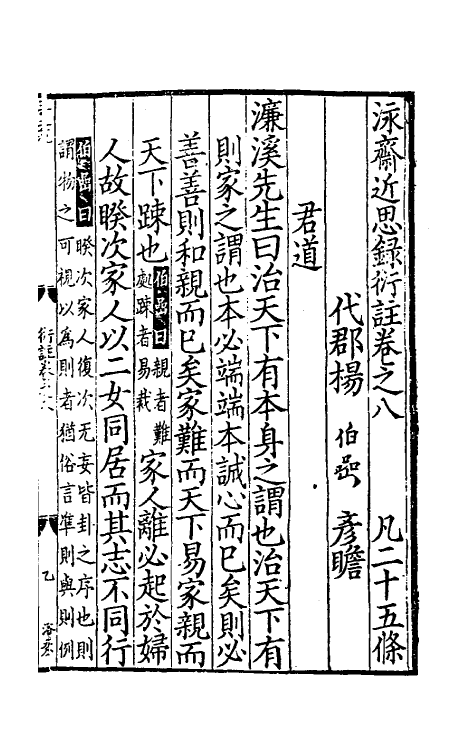 泳齋近思錄衍註卷之八 凡二十五條
代郡楊 伯嵒 彥瞻
君道
濂溪先生曰治天下有本身之謂也治天下有
則家之謂也本必端端本誠心而已矣則必
善善則和親而已矣家難而天下易家親而
天下踈也伯嵒曰親者難處踈者易裁家人離必起於婦
人故睽次家人以二女同居而其志不同行
伯嵒曰睽次家人復次无妄皆卦之序也則
謂物之可視以為則者猶俗言準則與則例
衍註卷之八
乙